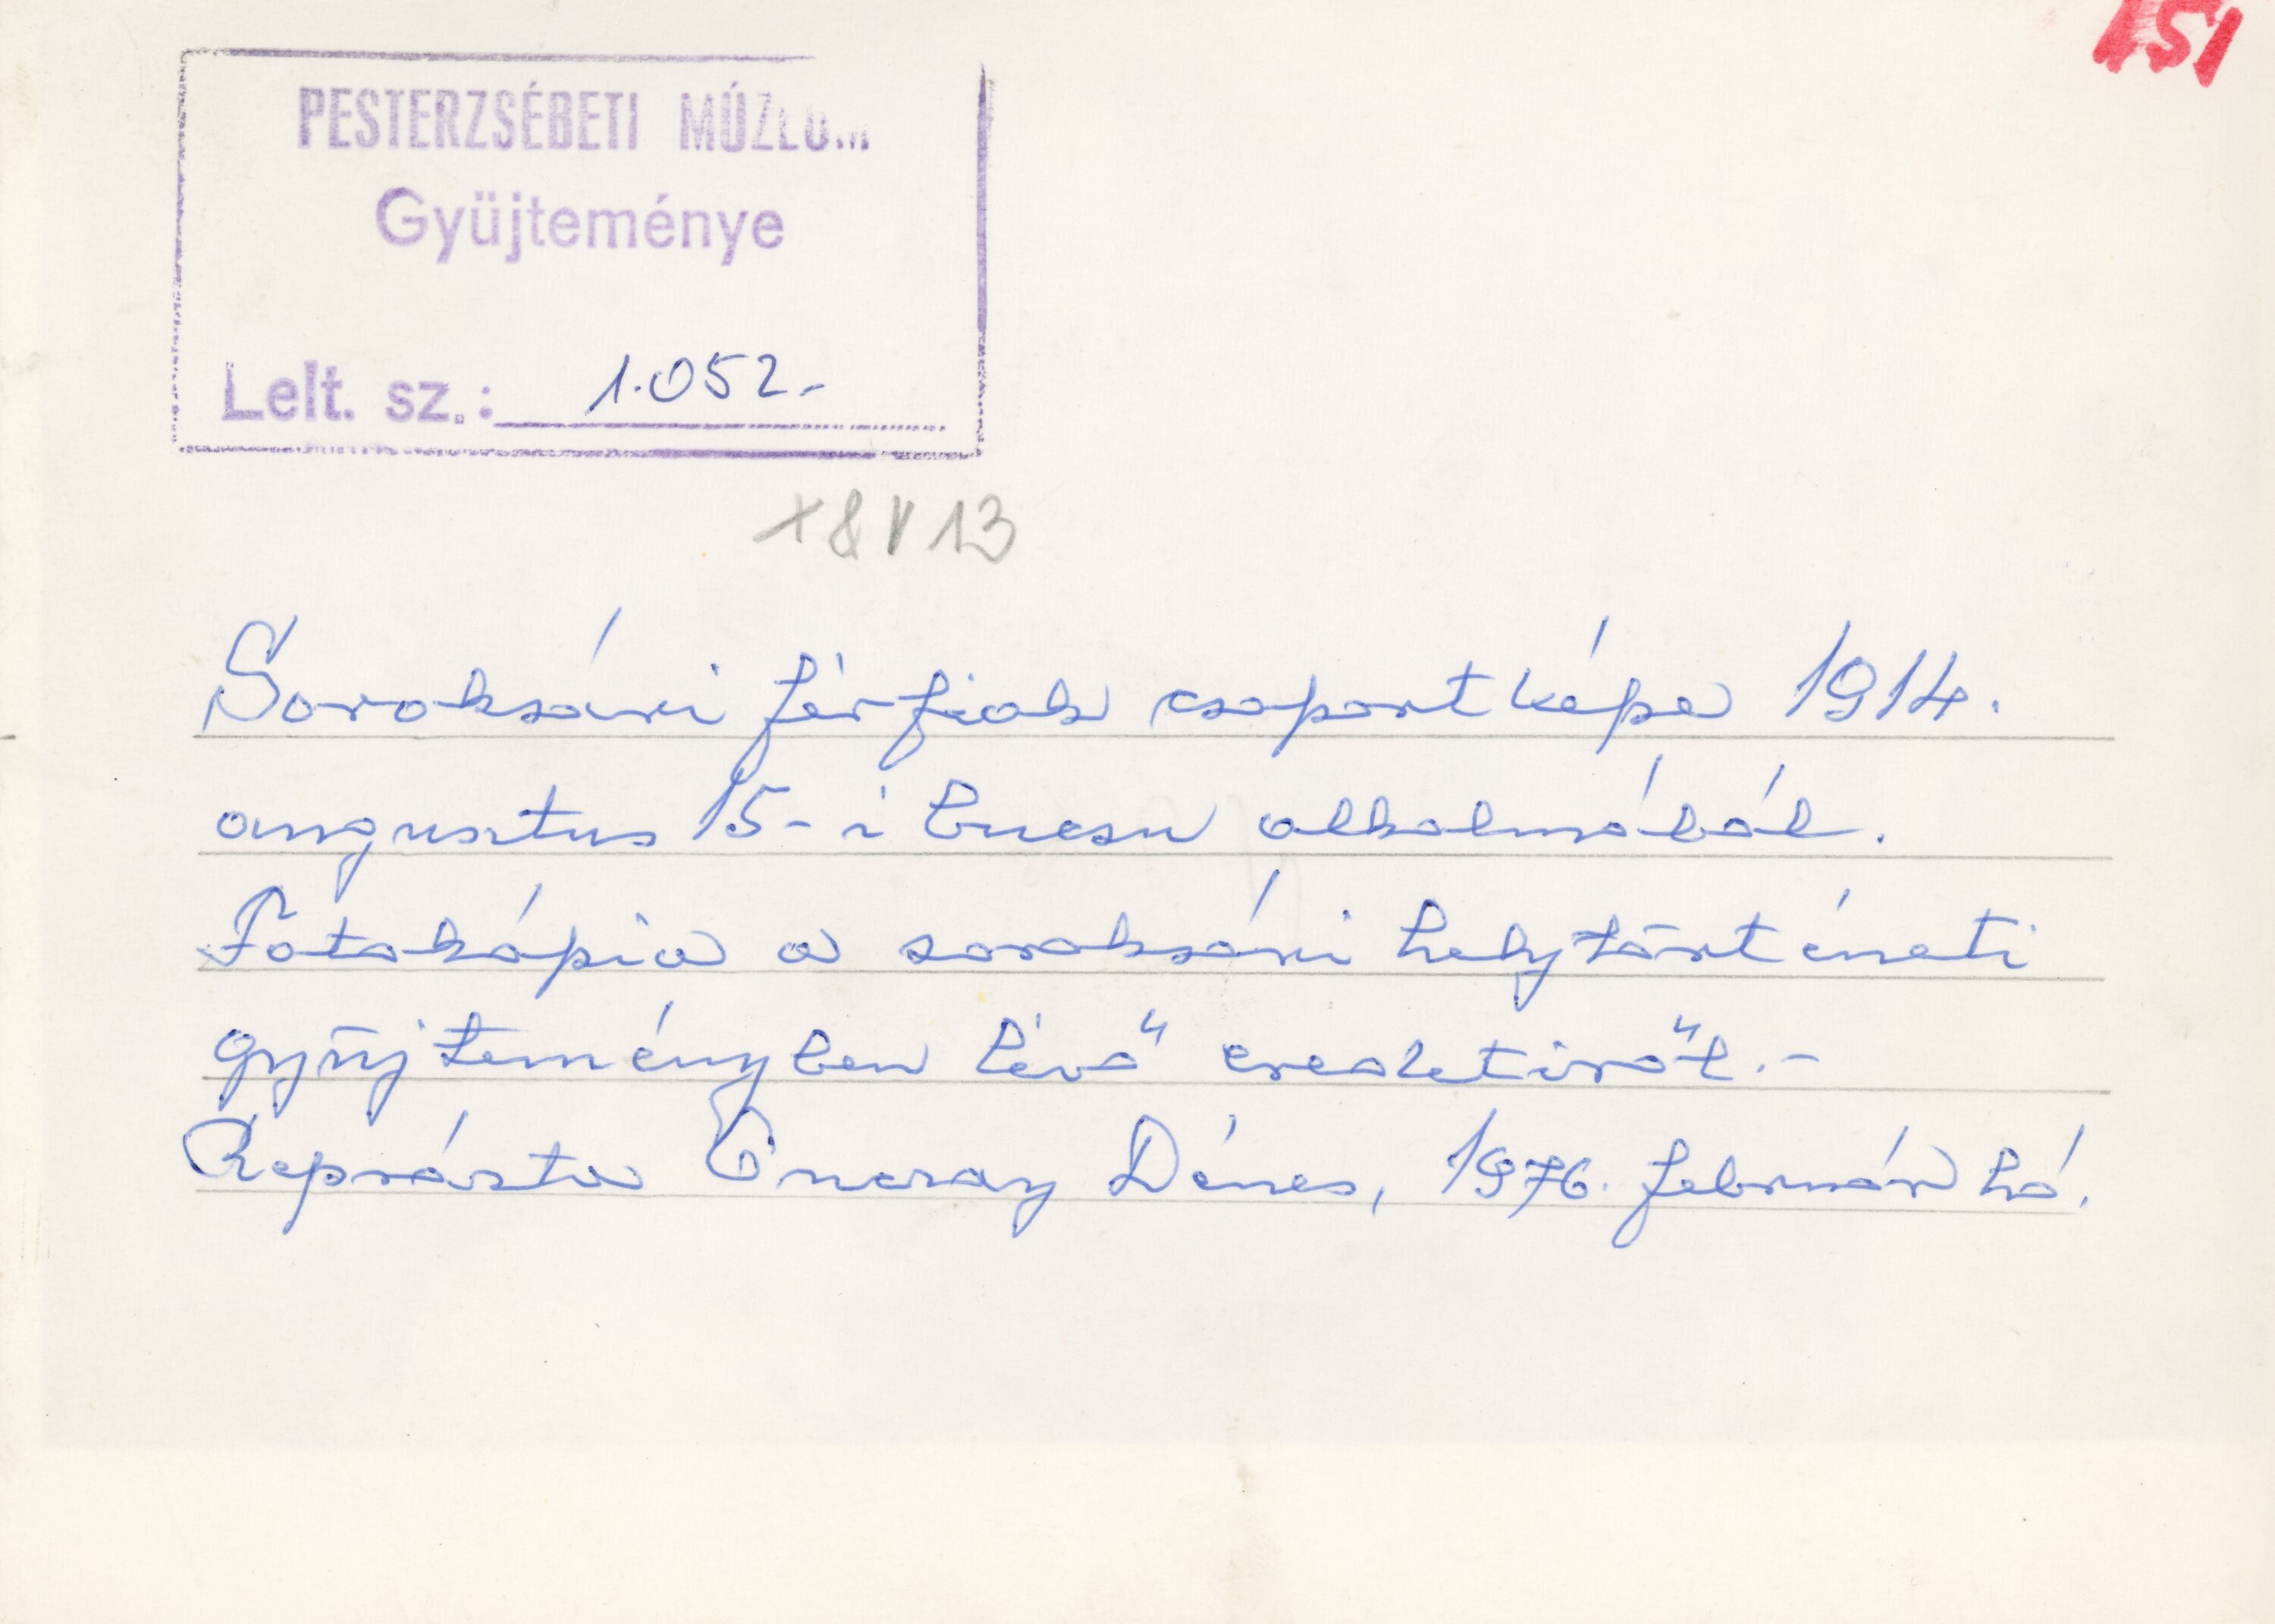 151
PESTERZSÉBETI MÚZEUM
Gyüjteménye
Lelt. sz.: 1.052.-
13
Soroksári férfiak csoportképe 1914.
augusztus 15-i bucsu alkalmából.
Fotokópia a soroksári helytörténeti
gyűjteményben lévő eredetiről.-
Reprózta Dénes, 1976. február hó.